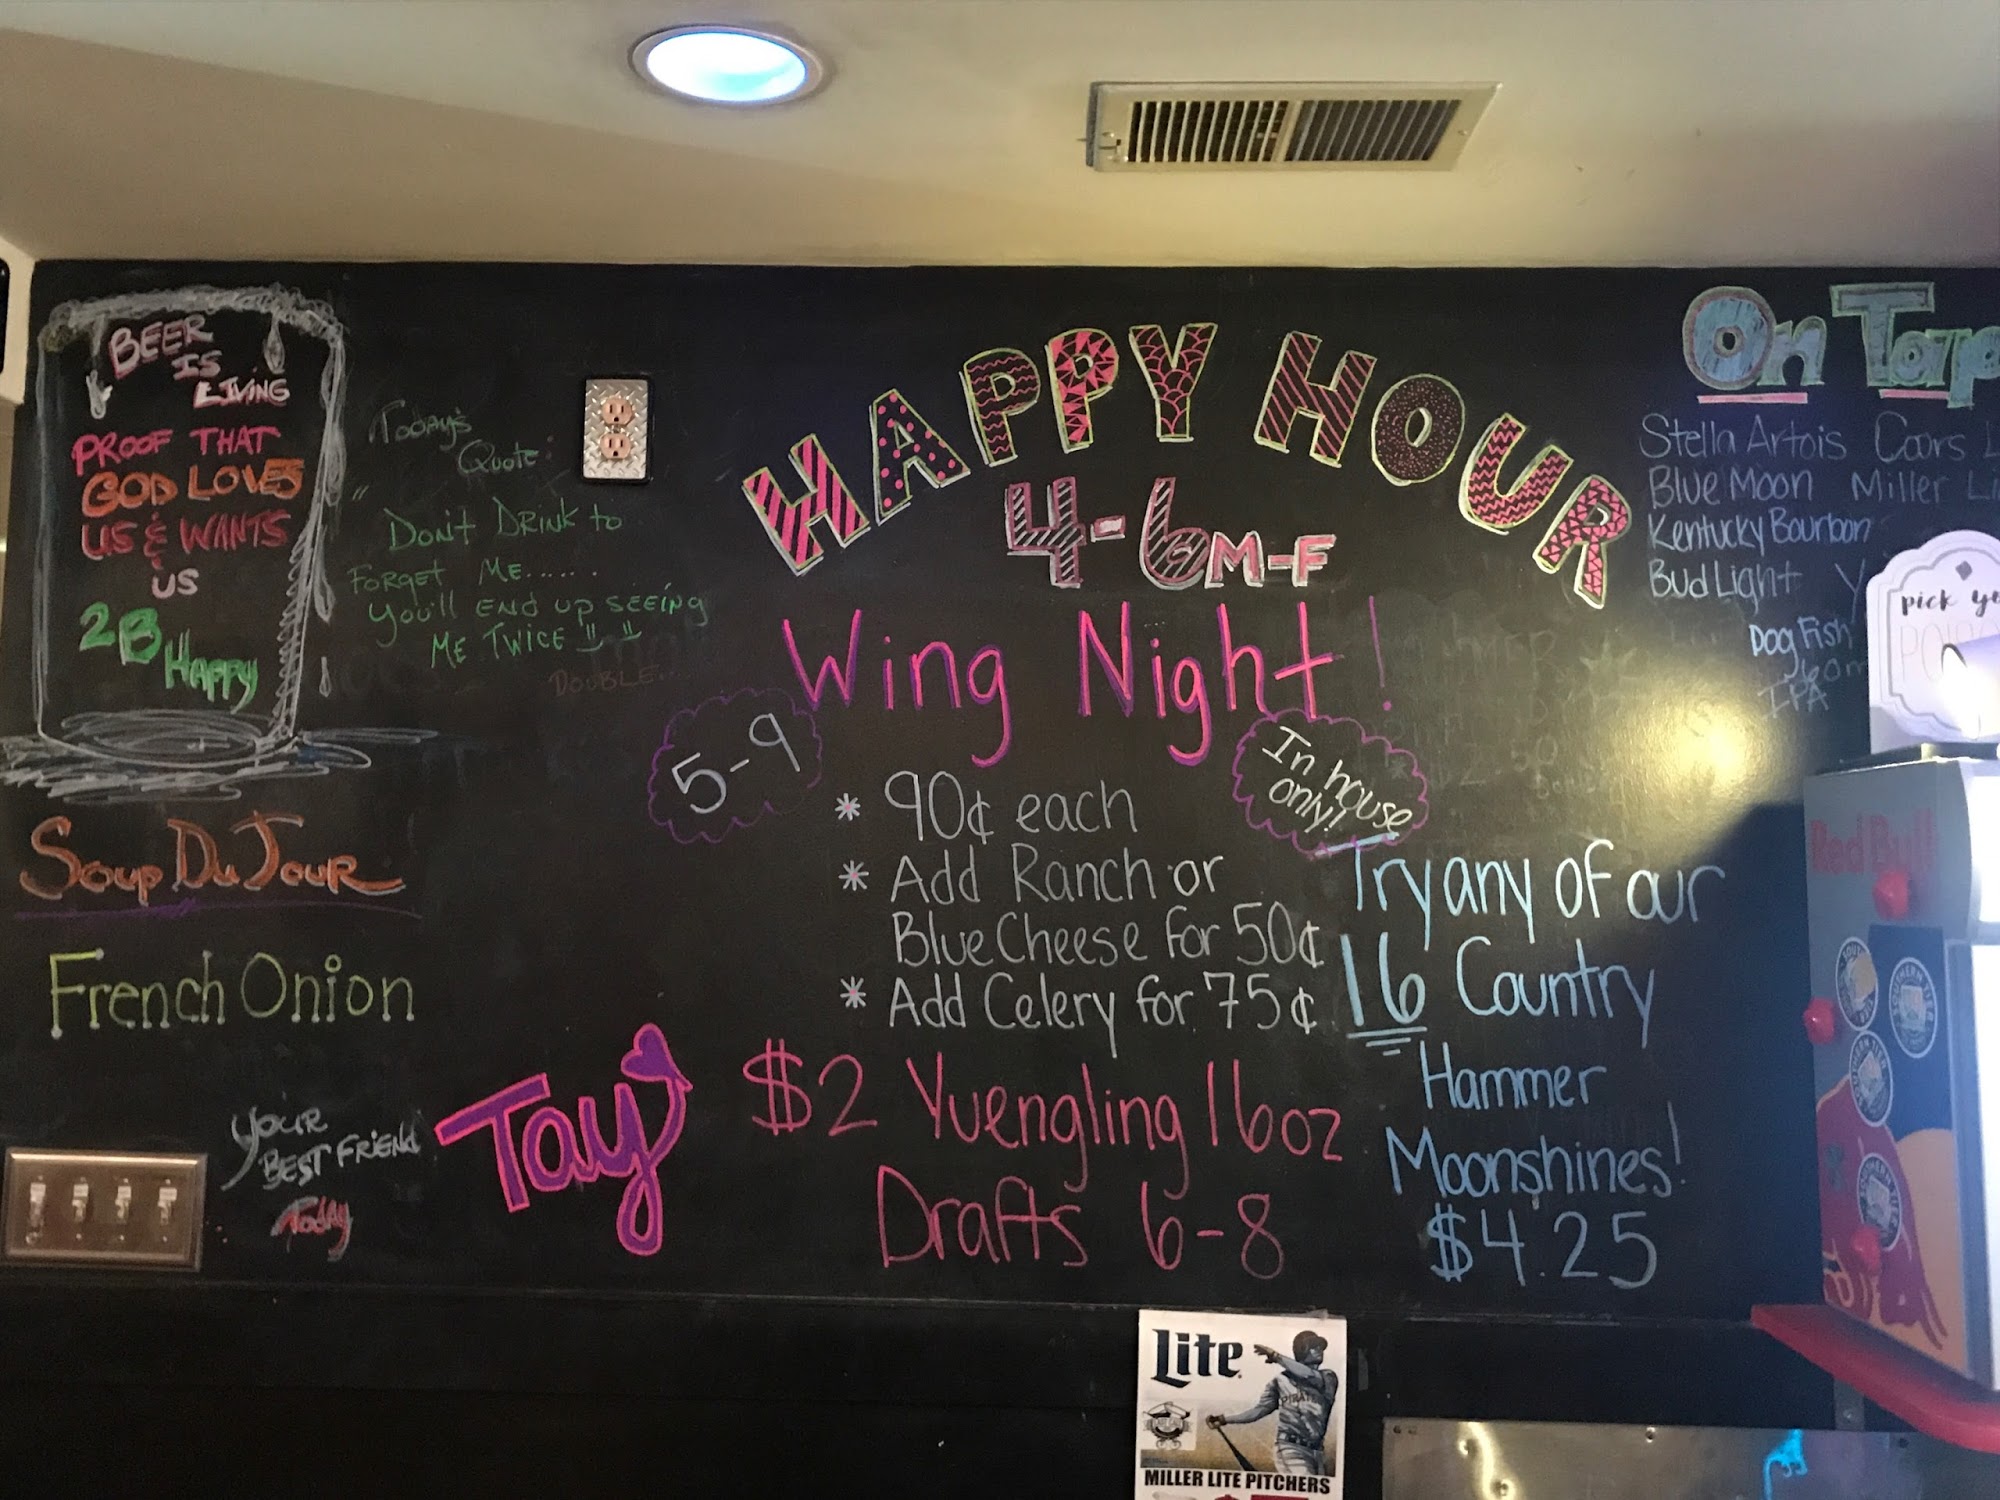 BEER
IS
LIVING
PROOF THAT
GOD LOVES
US & WANTS
US
2B
HAPPY
TODAY'S
QUOTE:
"DON'T DRINK TO
FORGET ME......
YOU'LL END UP SEEING
ME TWICE !!
DOUBLE...
SOUP DU JOUR
French Onion
YOUR
BEST FRIEND
TODAY
Tay
HAPPY HOUR
4-6 M-F
Wing Night!
5-9
In house
only!
* 90¢ each
* Add Ranch or
Blue Cheese for 50¢
* Add Celery for 75¢
$2 Yuengling 16oz
Drafts 6-8
Try any of our
16 Country
Hammer
Moonshines!
$4.25
On Tap
Stella Artois Coors L
Blue Moon Miller Li
Kentucky Bourbon
Bud Light Y
Dog Fish
60m
IPA
pick yo
Red Bull
SOUTHERN TIER
Lite
PIRATES
MILLER LITE PITCHERS